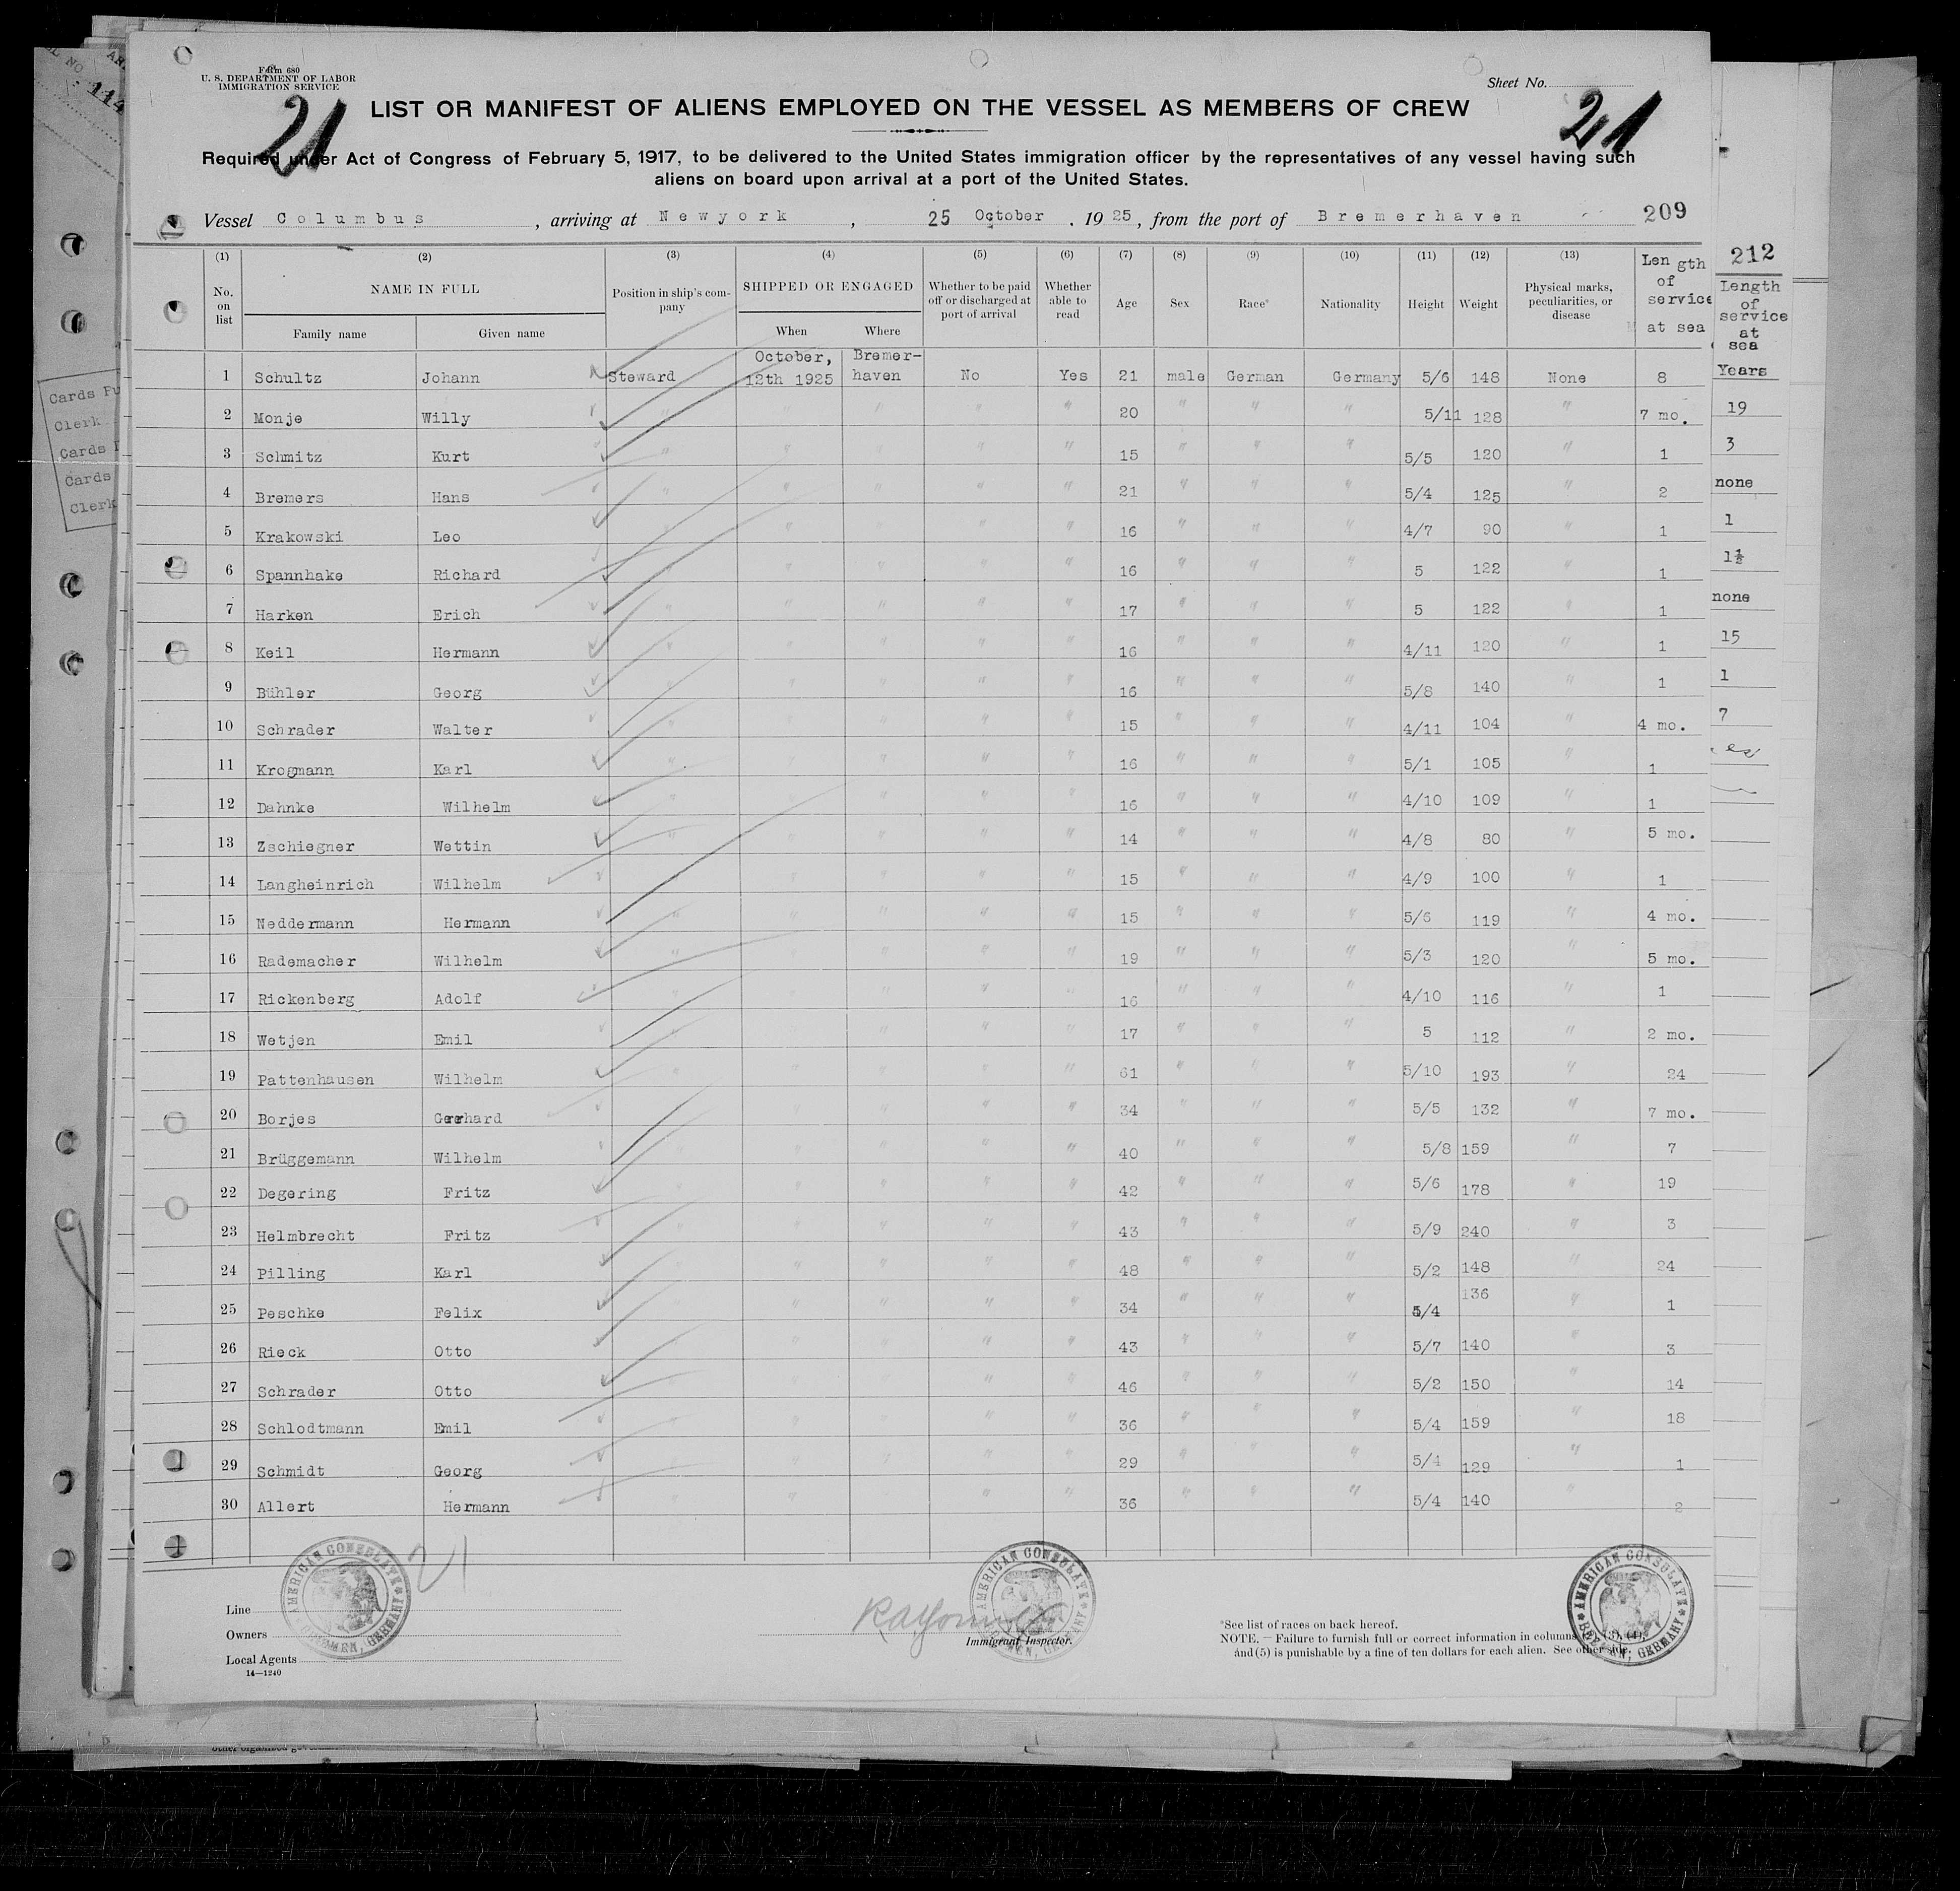 Form 680
U. S. DEPARTMENT OF LABOR
IMMIGRATION SERVICE
Sheet No.
21
LIST OR MANIFEST OF ALIENS EMPLOYED ON THE VESSEL AS MEMBERS OF CREW
21
Required under Act of Congress of February 5, 1917, to be delivered to the United States immigration officer by the representatives of any vessel having such
aliens on board upon arrival at a port of the United States.
Vessel Columbus, arriving at Newyork, 25 October, 1925, from the port of Bremerhaven 209
(1) (2) (3) (4) (5) (6) (7) (8) (9) (10) (11) (12) (13)
No. on list
NAME IN FULL
Family name Given name
Position in ship's company
SHIPPED OR ENGAGED
When Where
Whether to be paid off or discharged at port of arrival
Whether able to read
Age Sex Race* Nationality Height Weight
Physical marks, peculiarities, or disease
Length of service at sea
1 Schultz Johann Steward October, 12th 1925 Bremerhaven No Yes 21 male German Germany 5/6 148 None 8
2 Monje Willy " " " " " 20 " " " 5/11 128 " 7 mo.
3 Schmitz Kurt " " " " " 15 " " " 5/5 120 " 1
4 Bremers Hans " " " " " 21 " " " 5/4 125 " 2
5 Krakowski Leo " " " " " 16 " " " 4/7 90 " 1
6 Spannhake Richard " " " " " 16 " " " 5 122 " 1
7 Harken Erich " " " " " 17 " " " 5 122 " 1
8 Keil Hermann " " " " " 16 " " " 4/11 120 " 1
9 Bühler Georg " " " " " 16 " " " 5/8 140 " 1
10 Schrader Walter " " " " " 15 " " " 4/11 104 " 4 mo.
11 Krogmann Karl " " " " " 16 " " " 5/1 105 " 1
12 Dahnke Wilhelm " " " " " 16 " " " 4/10 109 " 1
13 Zschiegner Wettin " " " " " 14 " " " 4/8 80 " 5 mo.
14 Langheinrich Wilhelm " " " " " 15 " " " 4/9 100 " 1
15 Neddermann Hermann " " " " " 15 " " " 5/6 119 " 4 mo.
16 Rademacher Wilhelm " " " " " 19 " " " 5/3 120 " 5 mo.
17 Rickenberg Adolf " " " " " 16 " " " 4/10 116 " 1
18 Wetjen Emil " " " " " 17 " " " 5 112 " 2 mo.
19 Pattenhausen Wilhelm " " " " " 61 " " " 5/10 193 " 24
20 Borjes Gerhard " " " " " 34 " " " 5/5 132 " 7 mo.
21 Brüggemann Wilhelm " " " " " 40 " " " 5/8 159 " 7
22 Degering Fritz " " " " " 42 " " " 5/6 178 " 19
23 Helmbrecht Fritz " " " " " 43 " " " 5/9 240 " 3
24 Pilling Karl " " " " " 48 " " " 5/2 148 " 24
25 Peschke Felix " " " " " 34 " " " 5/4 136 " 1
26 Rieck Otto " " " " " 43 " " " 5/7 140 " 3
27 Schrader Otto " " " " " 46 " " " 5/2 150 " 14
28 Schlodtmann Emil " " " " " 36 " " " 5/4 159 " 18
29 Schmidt Georg " " " " " 29 " " " 5/4 129 " 1
30 Allert Hermann " " " " " 36 " " " 5/4 140 " 2
21
AMERICAN CONSULATE BREMEN, GERMANY
AMERICAN CONSULATE BREMEN, GERMANY
AMERICAN CONSULATE BREMEN, GERMANY
Line
Owners
Local Agents
14—1240
Immigrant Inspector.
*See list of races on back hereof.
NOTE.—Failure to furnish full or correct information in columns (3), (4),
and (5) is punishable by a fine of ten dollars for each alien. See other side.
212
Length
of
service
at
sea
Years
19
3
none
1
1½
none
15
1
7
114
Cards
Clerk
Cards
Cards
Clerk